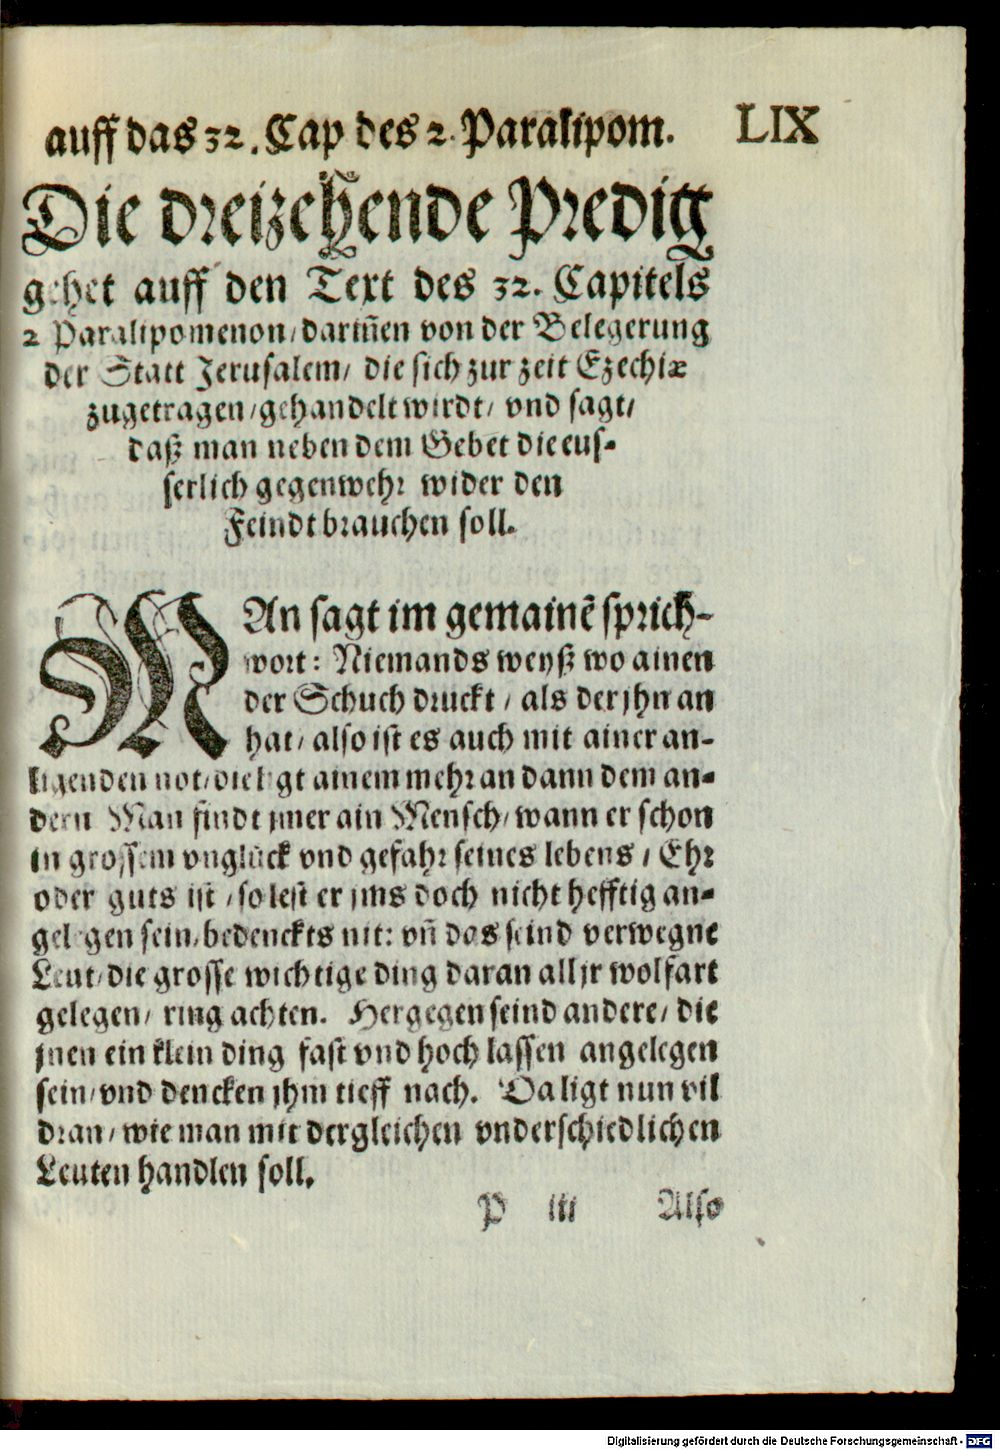 auff das 32. Cap des 2. Paralipom. LIX
Die dreizehende Predig
gehet auff den Text des 32. Capitels
2 Paralipomenon/ dariñen von der Belegerung
der Statt Jerusalem/ die sich zur zeit Ezechiæ
zugetragen/ gehandelt wirdt/ vnd sagt/
daß man neben dem Gebet die eus-
serlich gegenwehr wider den
Feindt brauchen soll.
MAn sagt im gemainē sprich-
wort: Niemands weyß wo ainen
der Schuch druckt/ als der jhn an
hat/ also ist es auch mit ainer an-
ligenden not/ die ligt ainem mehr an dann dem an-
dern Man findt jmer ain Mensch/ wann er schon
in grossem vnglück vnd gefahr seines lebens/ Ehr
oder guts ist/ so lest er jms doch nicht hefftig an-
gelegen sein/ bedenckts nit: vñ das seind verwegne
Leut/ die grosse wichtige ding daran all jr wolfart
gelegen/ ring achten. Hergegen seind andere/ die
jnen ein klein ding fast vnd hoch lassen angelegen
sein/ vnd dencken jhm tieff nach. Da ligt nun vil
dran/ wie man mit dergleichen vnderschiedlichen
Leuten handlen soll.
P iii Also
Digitalisierung gefördert durch die Deutsche Forschungsgemeinschaft - DFG